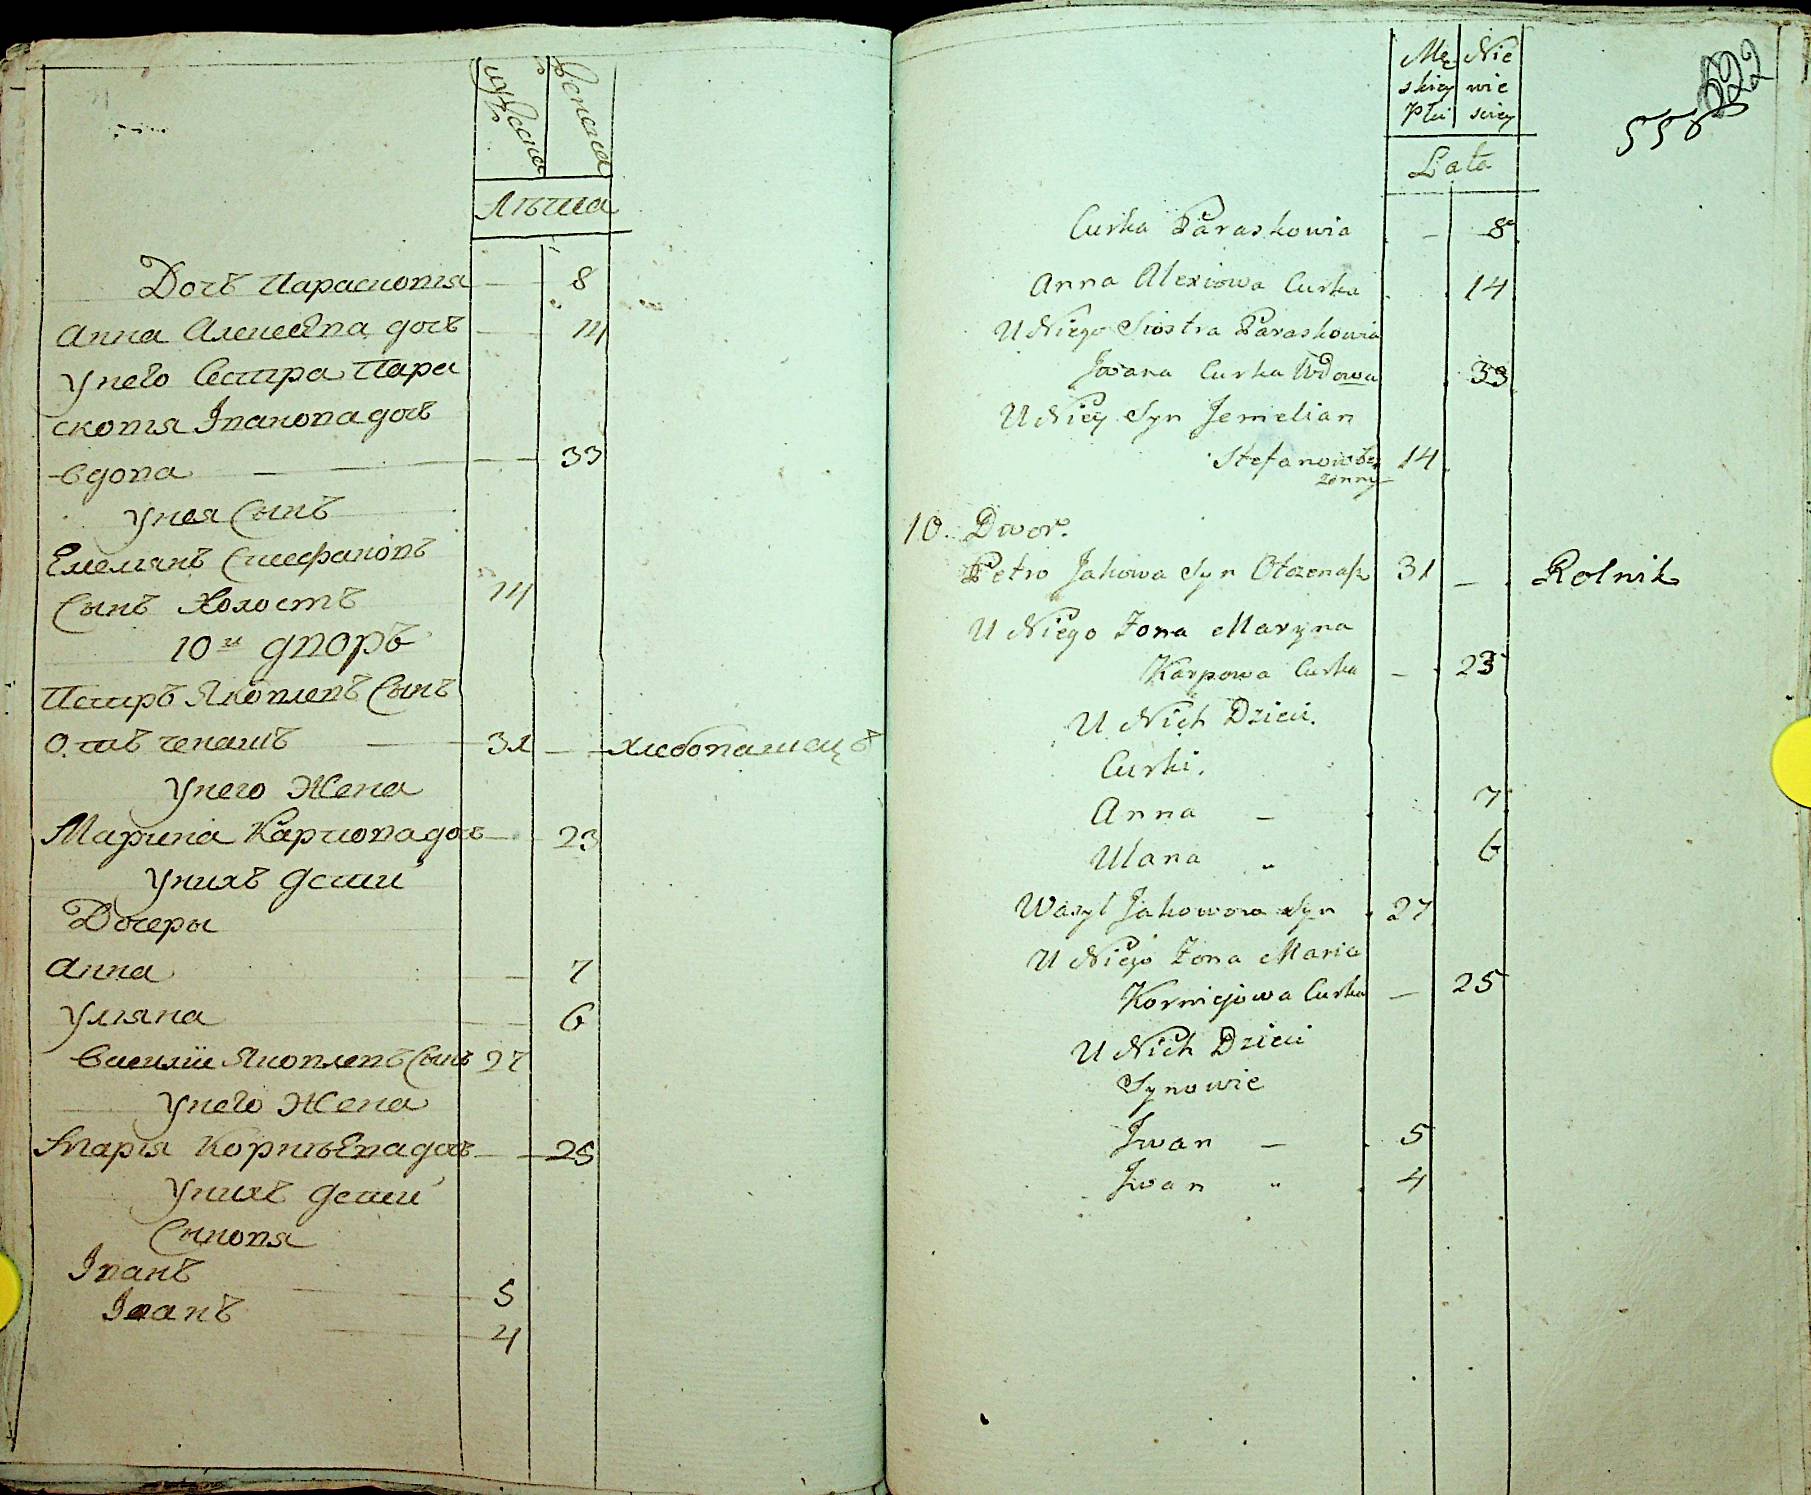 мужеска
женска
Лѣта
Дочь Параскопія 8
Анна Алексѣева дочь 14
У него Сестра Пара
скопія Іванова дочь
вдова 33
У нея Сынъ
Емельянъ Стефановъ
Сынъ Холостъ 14
10й дворъ
Петръ Яковлевъ Сынъ
Отъченашъ 31 хлебопашецъ
У него Жена
Марина Карпова дочь 23
У нихъ дети
Дочеры
Анна 7
Уляна 6
Василій Яковлевъ Сынъ 27
У него Жена
Марія Корнѣева дочь 25
У нихъ дети
Сыновя
Іванъ 5
Іванъ 4
Mę Nie
skiey wie
Płci sciey
Lata
558
622
Curka Paraskowia — 8
Anna Alexiowa Curka 14
U Niego Siostra Paraskowia
Jwana Curka Wdowa 33
U Niey Syn Jemelian
Stefanow bez 14
zenny
10. Dwor.
Petro Jakowa Syn Otczenasz 31 — Rolnik
U Niego Zona Maryna
Karpowa Curka — 23
U Nich Dzieci.
Curki.
Anna — 7
Ulana „ 6
Wasyl Jakowowa Syn 27
U Niego Zona Maria
Korniejowa Curka — 25
U Nich Dzieci
Synowie
Jwan — 5
Jwan „ 4